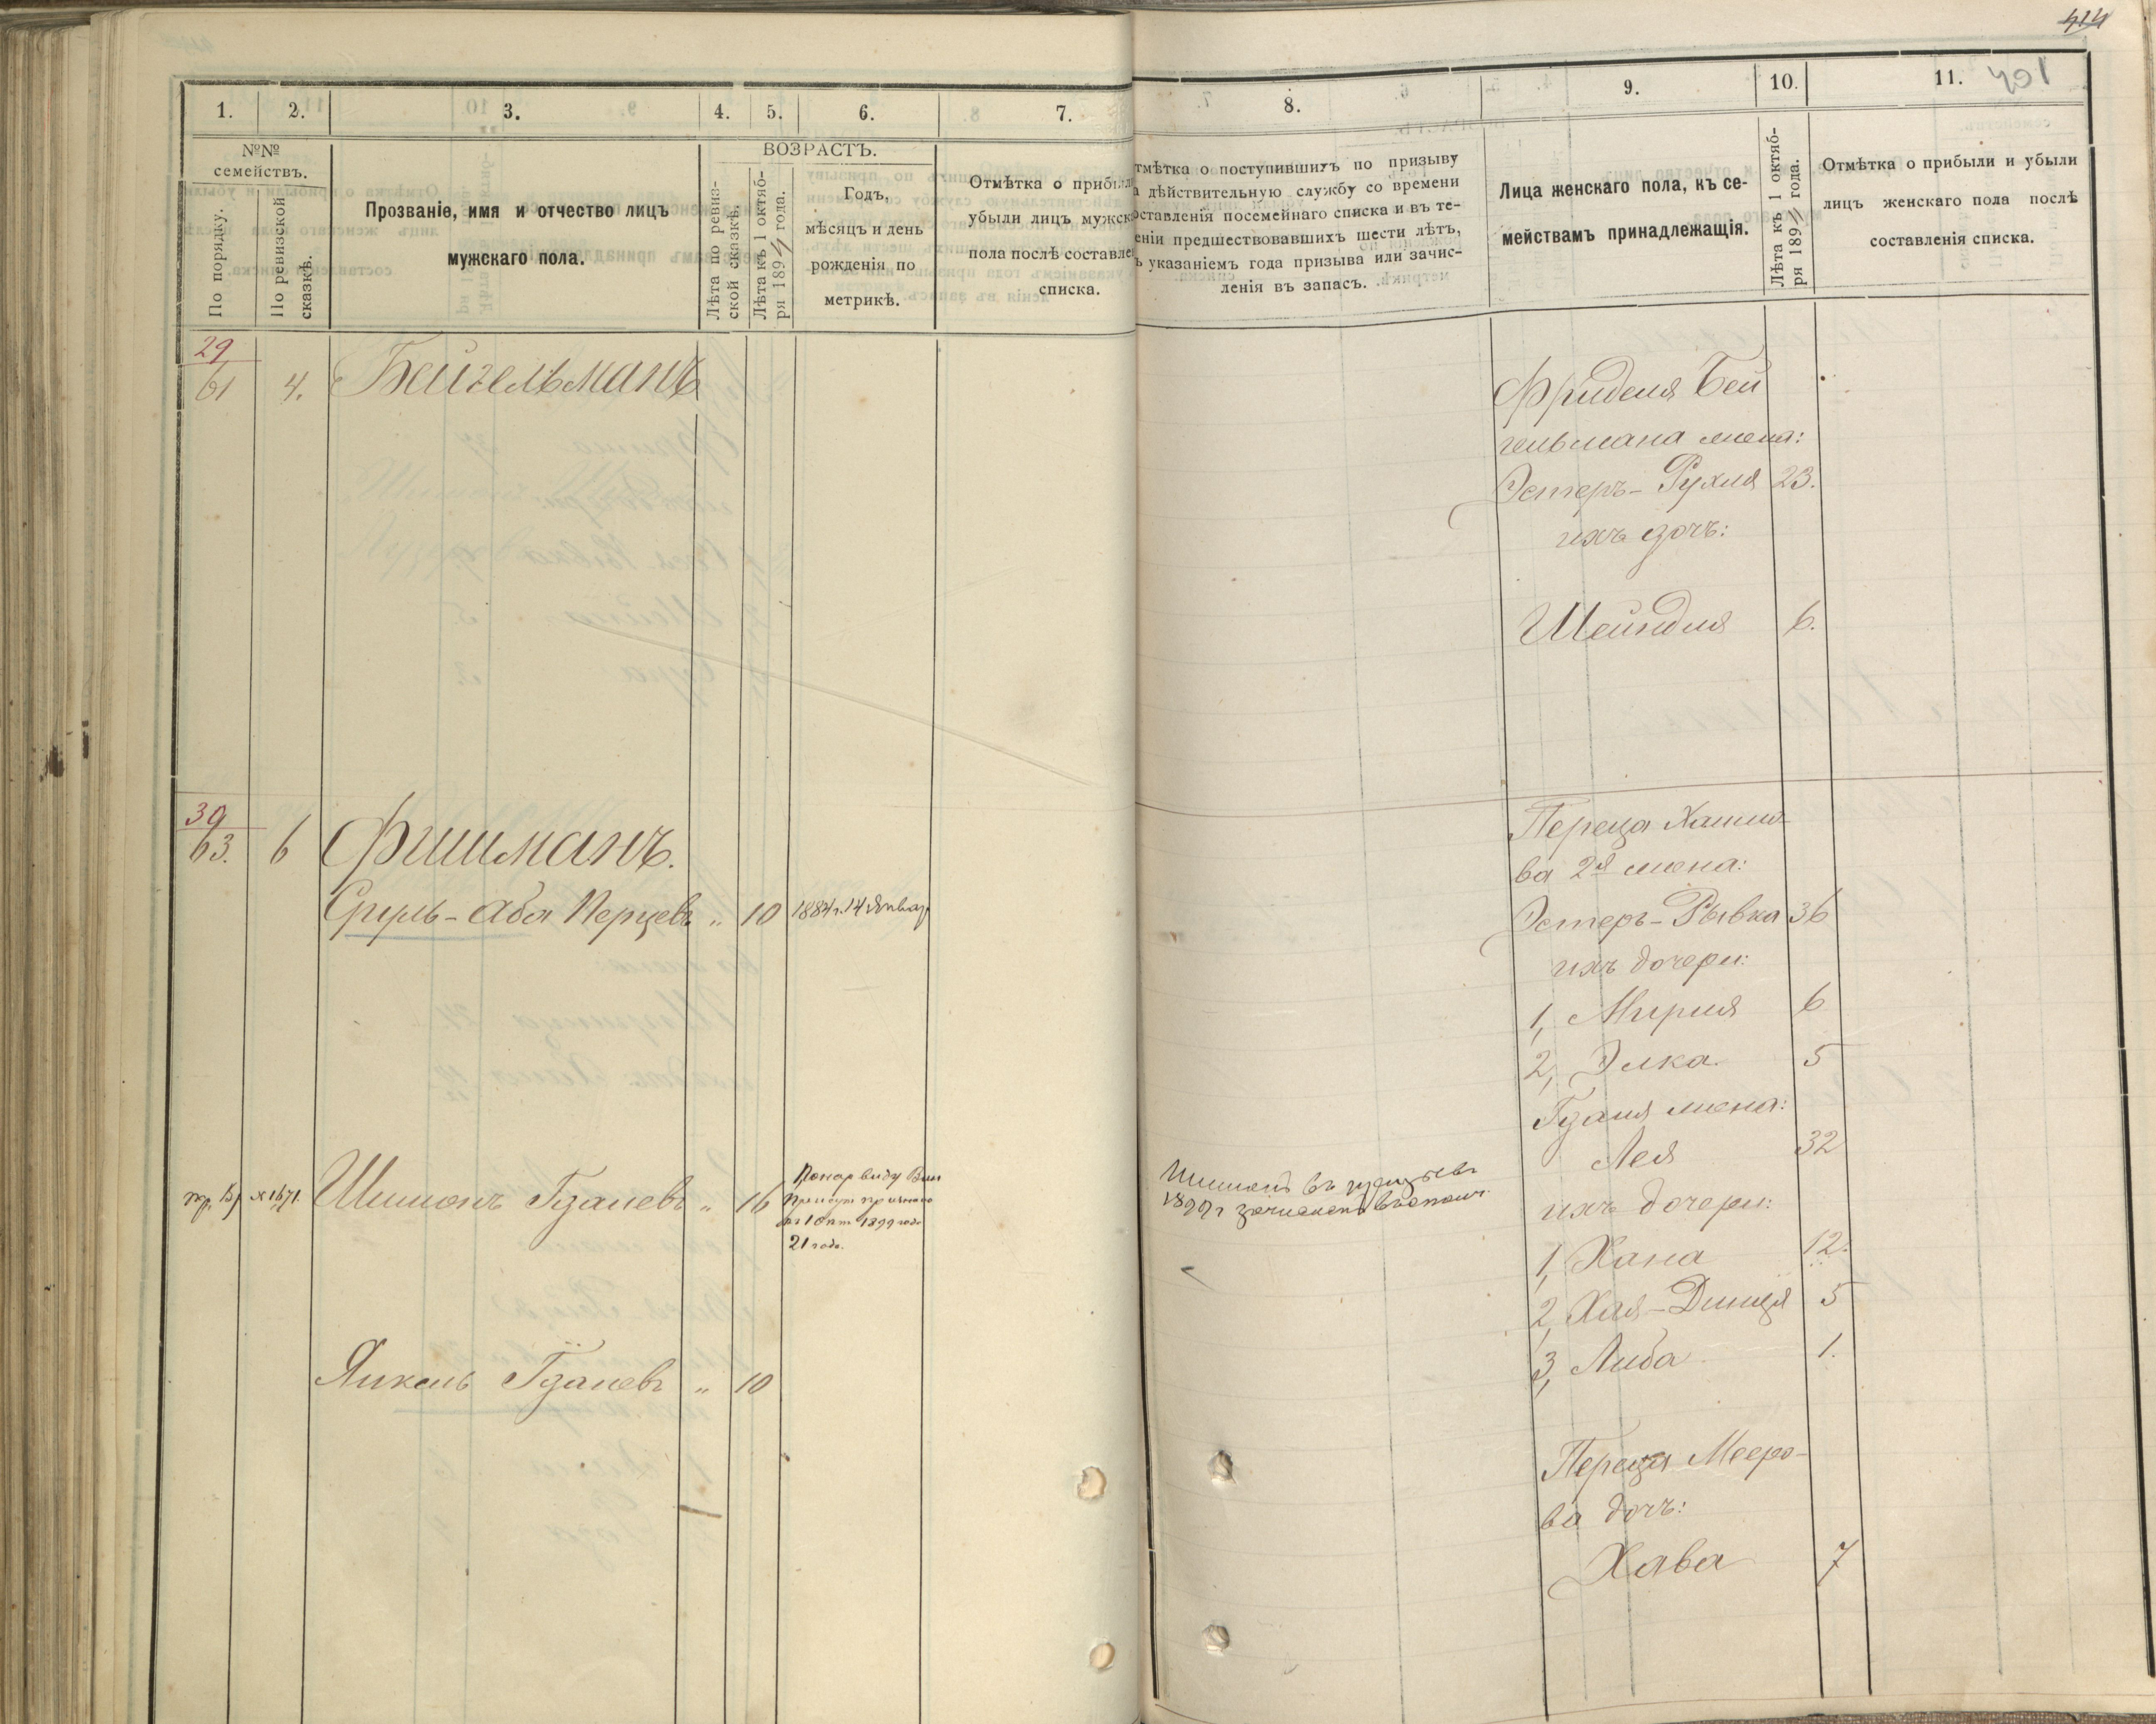 414
401
1.
2.
3.
4.
5.
6.
7.
8.
9.
10.
11.
№№ семействъ.
По порядку.
По ревизской сказкѣ.
Прозваніе, имя и отчество лицъ
мужскаго пола.
ВОЗРАСТЪ.
Лѣта по ревиз-
ской сказкѣ.
Лѣта къ 1 октяб-
ря 1894 года.
Годъ,
мѣсяцъ и день
рожденія по
метрикѣ.
Отмѣтка о прибыли
убыли лицъ мужск
пола послѣ составле
списка.
тмѣтка о поступившихъ по призыву
а дѣйствительную службу со времени
оставленія посемейнаго списка и въ те-
еніи предшествовавшихъ шести лѣтъ,
ъ указаніемъ года призыва или зачис-
ленія въ запасъ.
Лица женскаго пола, къ се-
мействамъ принадлежащія.
Лѣта къ 1 октяб-
ря 1894 года.
Отмѣтка о прибыли и убыли
лицъ женскаго пола послѣ
составленія списка.
29
61 4. Бейгельманъ
Фриделя Бей
гельмана жена:
Эстеръ-Рухля 23.
ихъ дочь:
Шейндля 6.
39
63. 6 Фишманъ.
Сруль-Аба Перцевъ " 10 1884 г. 14 Январ
Переца Хаимо-
ва 2я жена:
Эстеръ-Рывка 36
ихъ дочери:
1, Мириля 6
2, Элка 5
Гдаля жена:
Лея 32
ихъ дочери:
1, Хана 12.
2, Хая-Динця 5
3, Либа 1.
Шимонъ Гдалевъ " 16
по нар виду
1899 года
21 годъ.
1899 г зачисленъ
Янкель Гдалевъ " 10
Переца Мееро-
ва дочь:
Хава 7